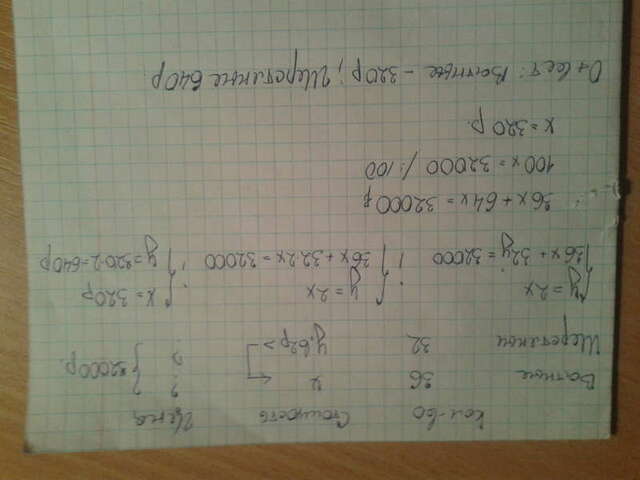 Кол-во Стоимость Цена
Ватные 36 x ? } 32000 р.
Шерстяные 32 y, в 2 р > ?
{ y = 2x { y = 2x { x = 320 р
36x + 32y = 32000 ; 36x + 32·2x = 32000 ; y = 320·2 = 640 р
36x + 64x = 32000 р
100x = 32000 /:100
x = 320 р.
Ответ: Ватные - 320 р; Шерстяные 640 р